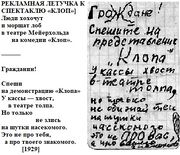 РЕКЛАМНАЯ ЛЕТУЧКА К
СПЕКТАКЛЮ «КЛОП»]
Люди хохочут
и морщат лоб
в театре Мейерхольда
на комедии «Клоп».
Гражданин!
Спеши
на демонстрацию «Клопа»
У кассы — хвост,
в театре толпа.
Но только
не злись
на шутки насекомого.
Это не про тебя,
а про твоего знакомого.
[1929]
Граждане!
Спешите на
представление
„Клопа"
У кассы хвост
в театре
толпа,
но только
не обижайся
на шутки
насекомого
это не про вас,